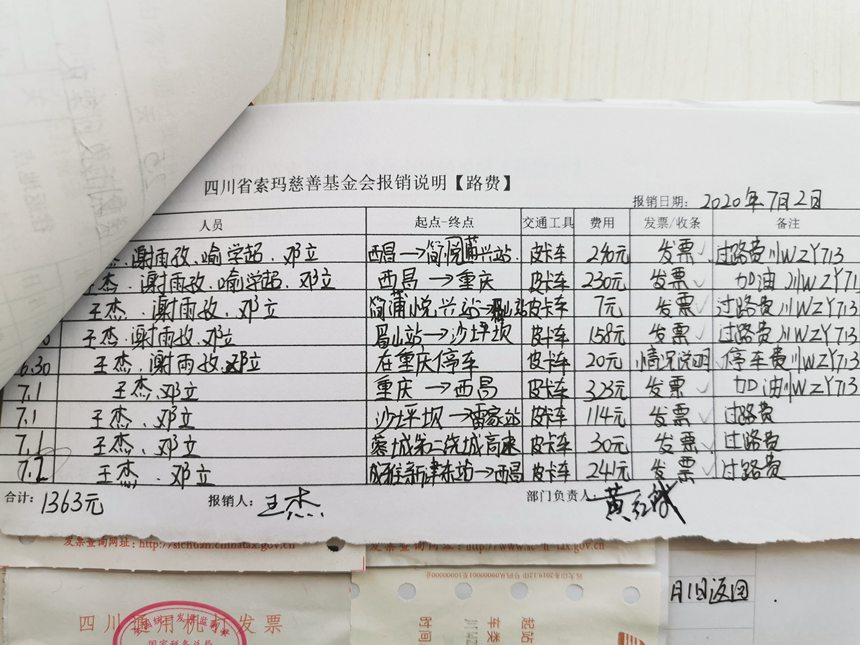 四川省索玛慈善基金会报销说明【路费】
报销日期: 2020年7月2日
人员 起点-终点 交通工具 费用 发票/收条 备注
杰.谢雨孜.喻学超.邓立 西昌→ 兴站 皮卡车 240元 发票 过路费川WZY713
王杰.谢雨孜.喻学超.邓立 西昌→重庆 皮卡车 230元 发票 加油川WZY71
王杰.谢雨孜.邓立 皮卡车 7元 发票 过路费川WZY713
王杰.谢雨孜.邓立 眉山站→沙坪坝 皮卡车 158元 发票 过路费川WZY713
6.30 王杰.谢雨孜.邓立 在重庆停车 皮卡车 20元 情况说明 停车费川WZY713
7.1 王杰.邓立 重庆→西昌 皮卡车 323元 发票 加油川WZY713
7.1 王杰.邓立 沙坪坝→雷家站 皮卡车 114元 发票 过路费
7.1 王杰.邓立 蓉城第二绕城高速 皮卡车 30元 发票 过路费
7.2 王杰.邓立 成雅新津东站→西昌 皮卡车 241元 发票 过路费
合计: 1363元 报销人: 王杰 部门负责人:
发票查询网址: http://sichuan.chinatax.gov.cn
发票查询网址:
四川通用机打发票
月1日返回